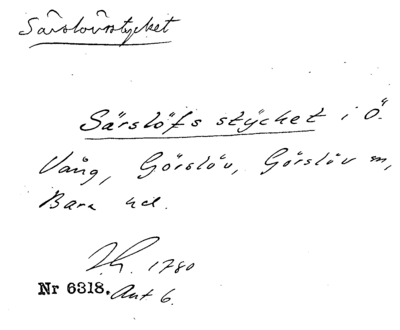 Särslövsstycket
Särslöfs stycket i Ö.
Vång, Görslöv, Görslöv sn,
Bara hd.
Jh. 1780
Nr 6318. Akt 6.